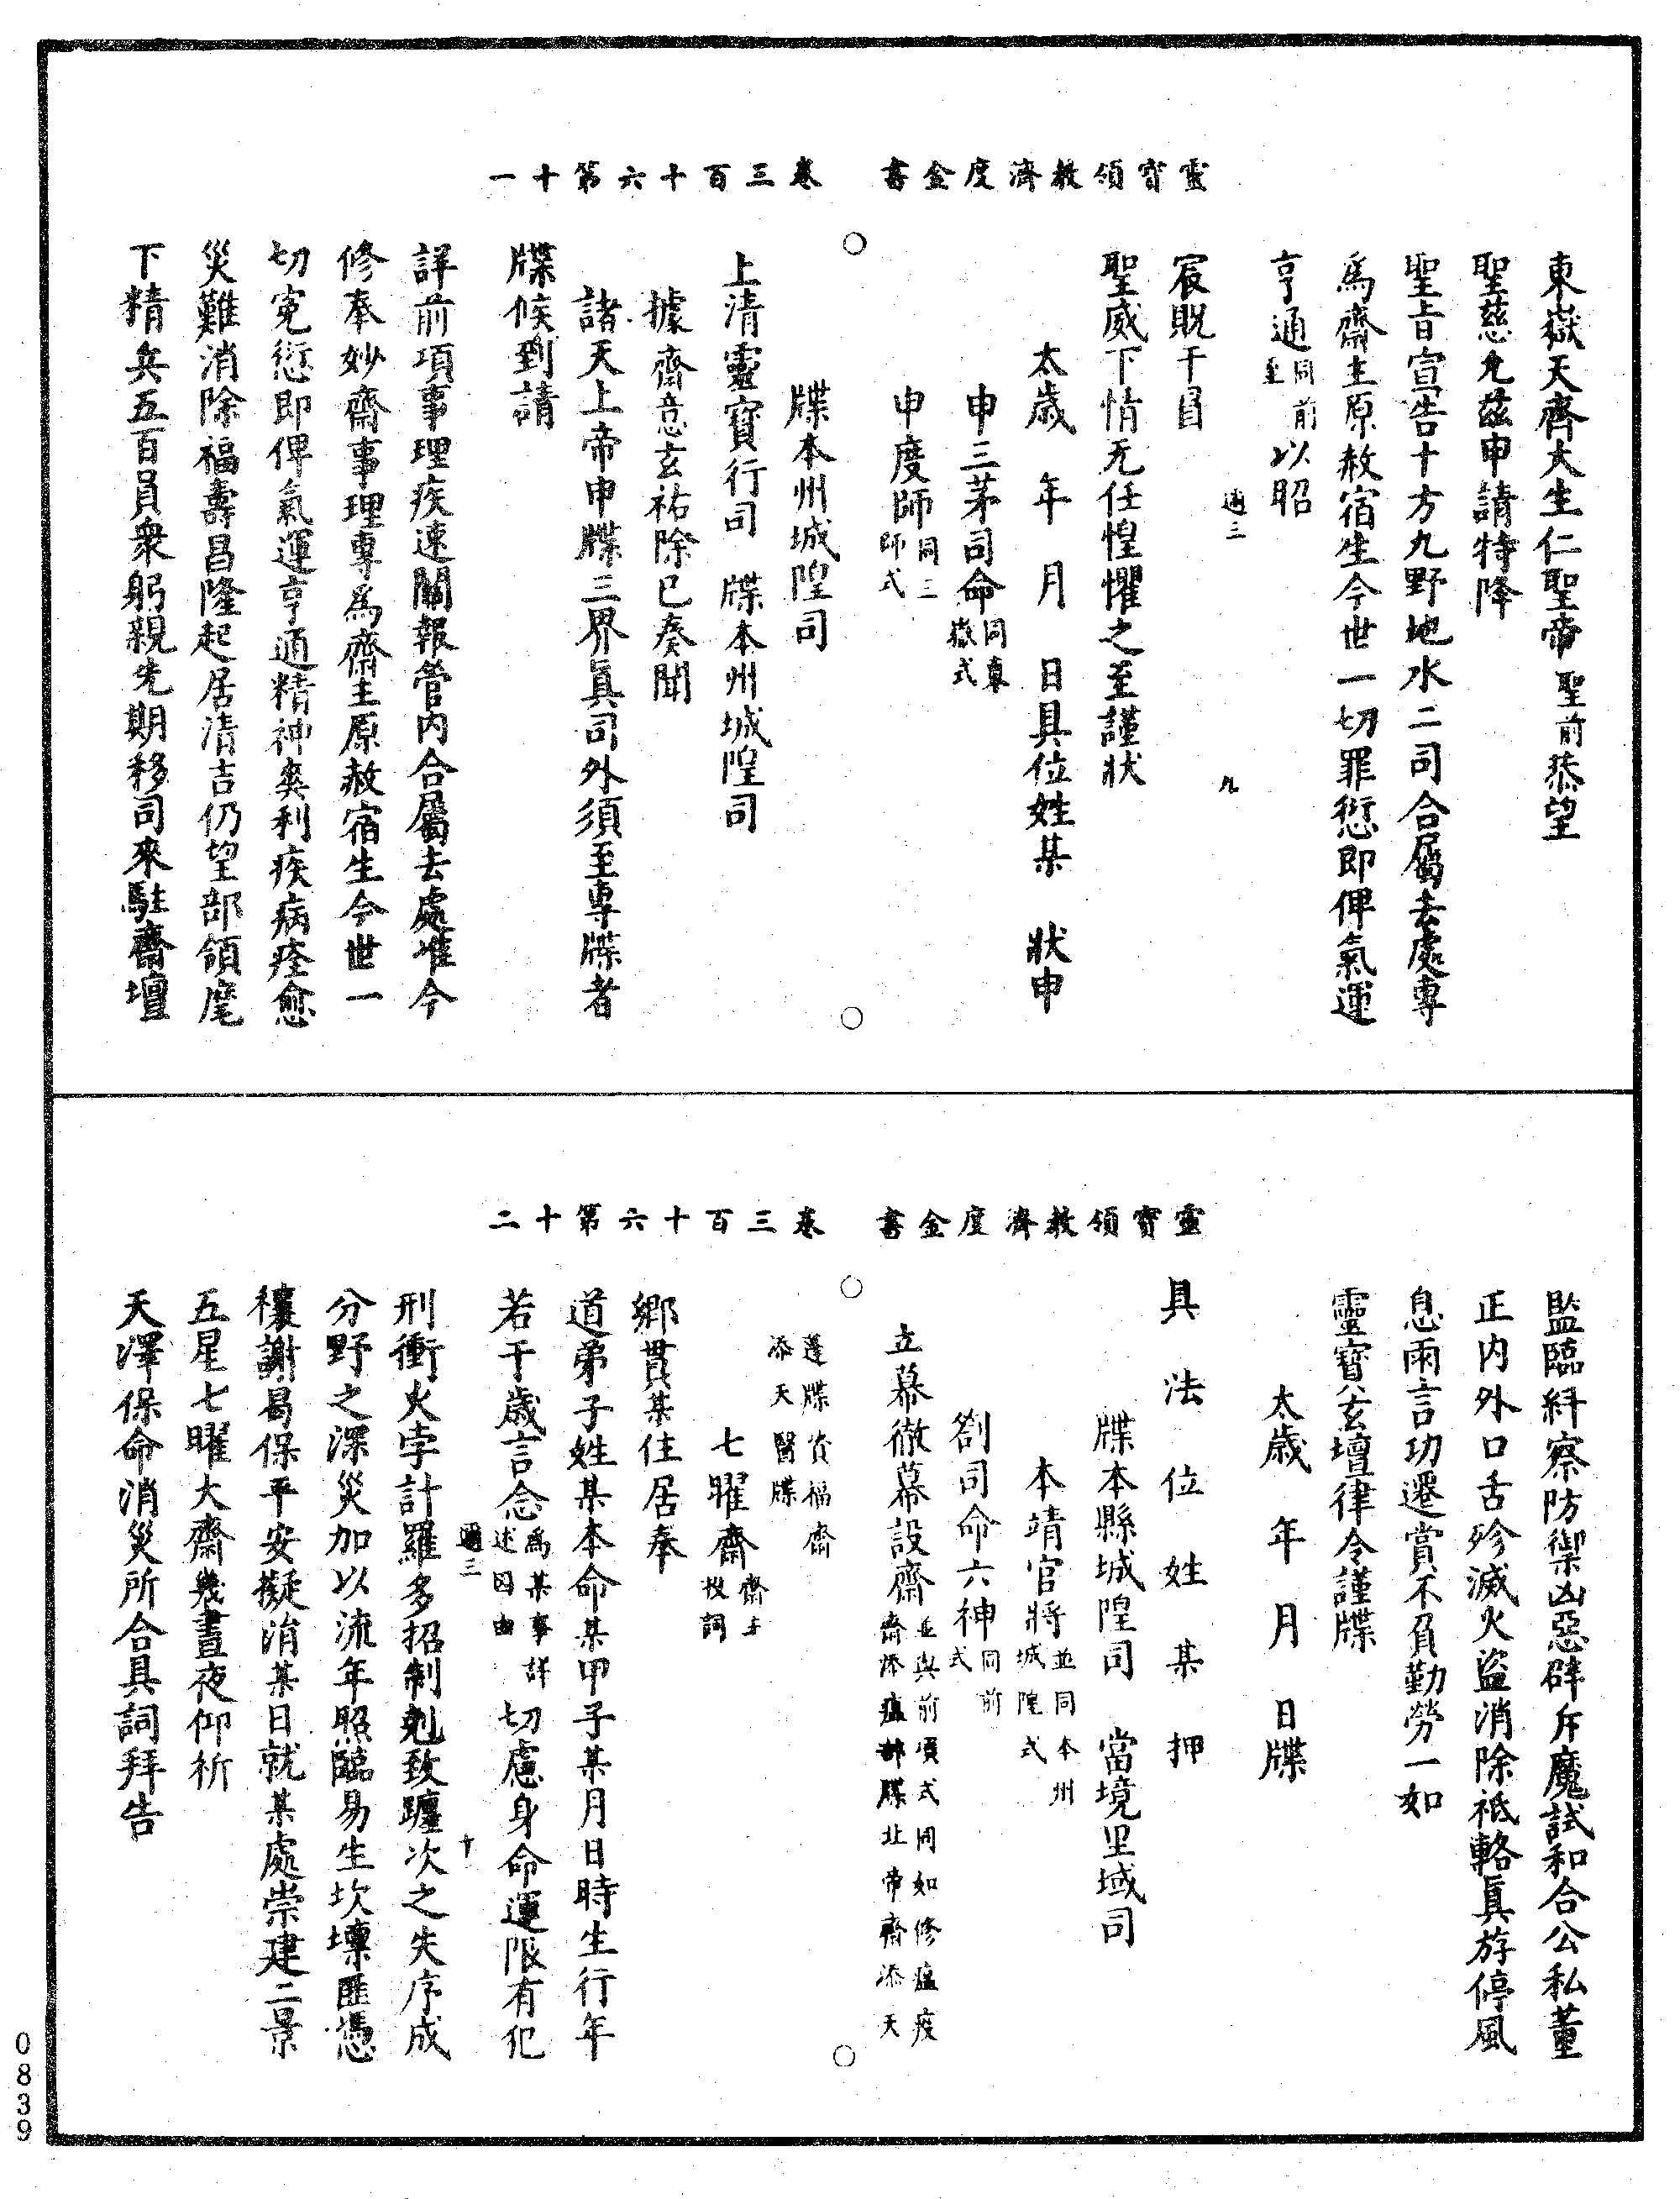 靈寶領教濟度金書　卷三百十六第十一
東嶽天齊大生仁聖帝 聖前恭望
聖慈允茲申請特降
聖旨宣告十方九野地水二司合屬去處專
爲齋主原赦宿生今世一切罪愆即俾氣運
亨通同前至以昭
通三　九
宸貺干冒
聖威下情无任惶懼之至謹狀
太歲　年　月　日具位姓某　狀申
申三茅司命同東嶽式
申度師同三師式
牒本州城隍司
上清靈寶行司　牒本州城隍司
據齋意玄祐除已奏聞
諸天上帝申牒三界真司外須至專牒者
牒候到請
詳前項事理疾速關報管内合屬去處准今
修奉妙齋事理專爲齋主原赦宿生今世一
切寃愆即俾氣運亨通精神爽利疾病痊愈
災難消除福壽昌隆起居清吉仍望部領麾
下精兵五百員衆躬親先期移司來駐齋壇
靈寶領教濟度金書　卷三百十六第十二
監臨糾察防禦凶惡辟斥魔試和合公私董
正内外口舌殄滅火盜消除祇輅真斿停風
息雨言功遷賞不負勤勞一如
靈寶玄壇律令謹牒
太歲　年　月　日牒
具法位姓某押
牒本縣城隍司　當境里域司
本靖官將並同本州城隍式
劄司命六神同前式
立幕徹幕設齋並與前項式同如修瘟疫齋添瘟部牒北帝齋添天
蓬牒資福齋添天醫牒
七曜齋齋主投詞
鄉貫某住居奉
道弟子姓某本命某甲子某月日時生行年
若干歲言念爲某事詳述因由切慮身命運限有犯
通三　十
刑衝火孛計羅多招制剋致躔次之失序成
分野之深災加以流年照臨易生坎壈匪憑
禳謝曷保平安擬涓某日就某處崇建二景
五星七曜大齋幾晝夜仰祈
天澤保命消災所合具詞拜告
0839